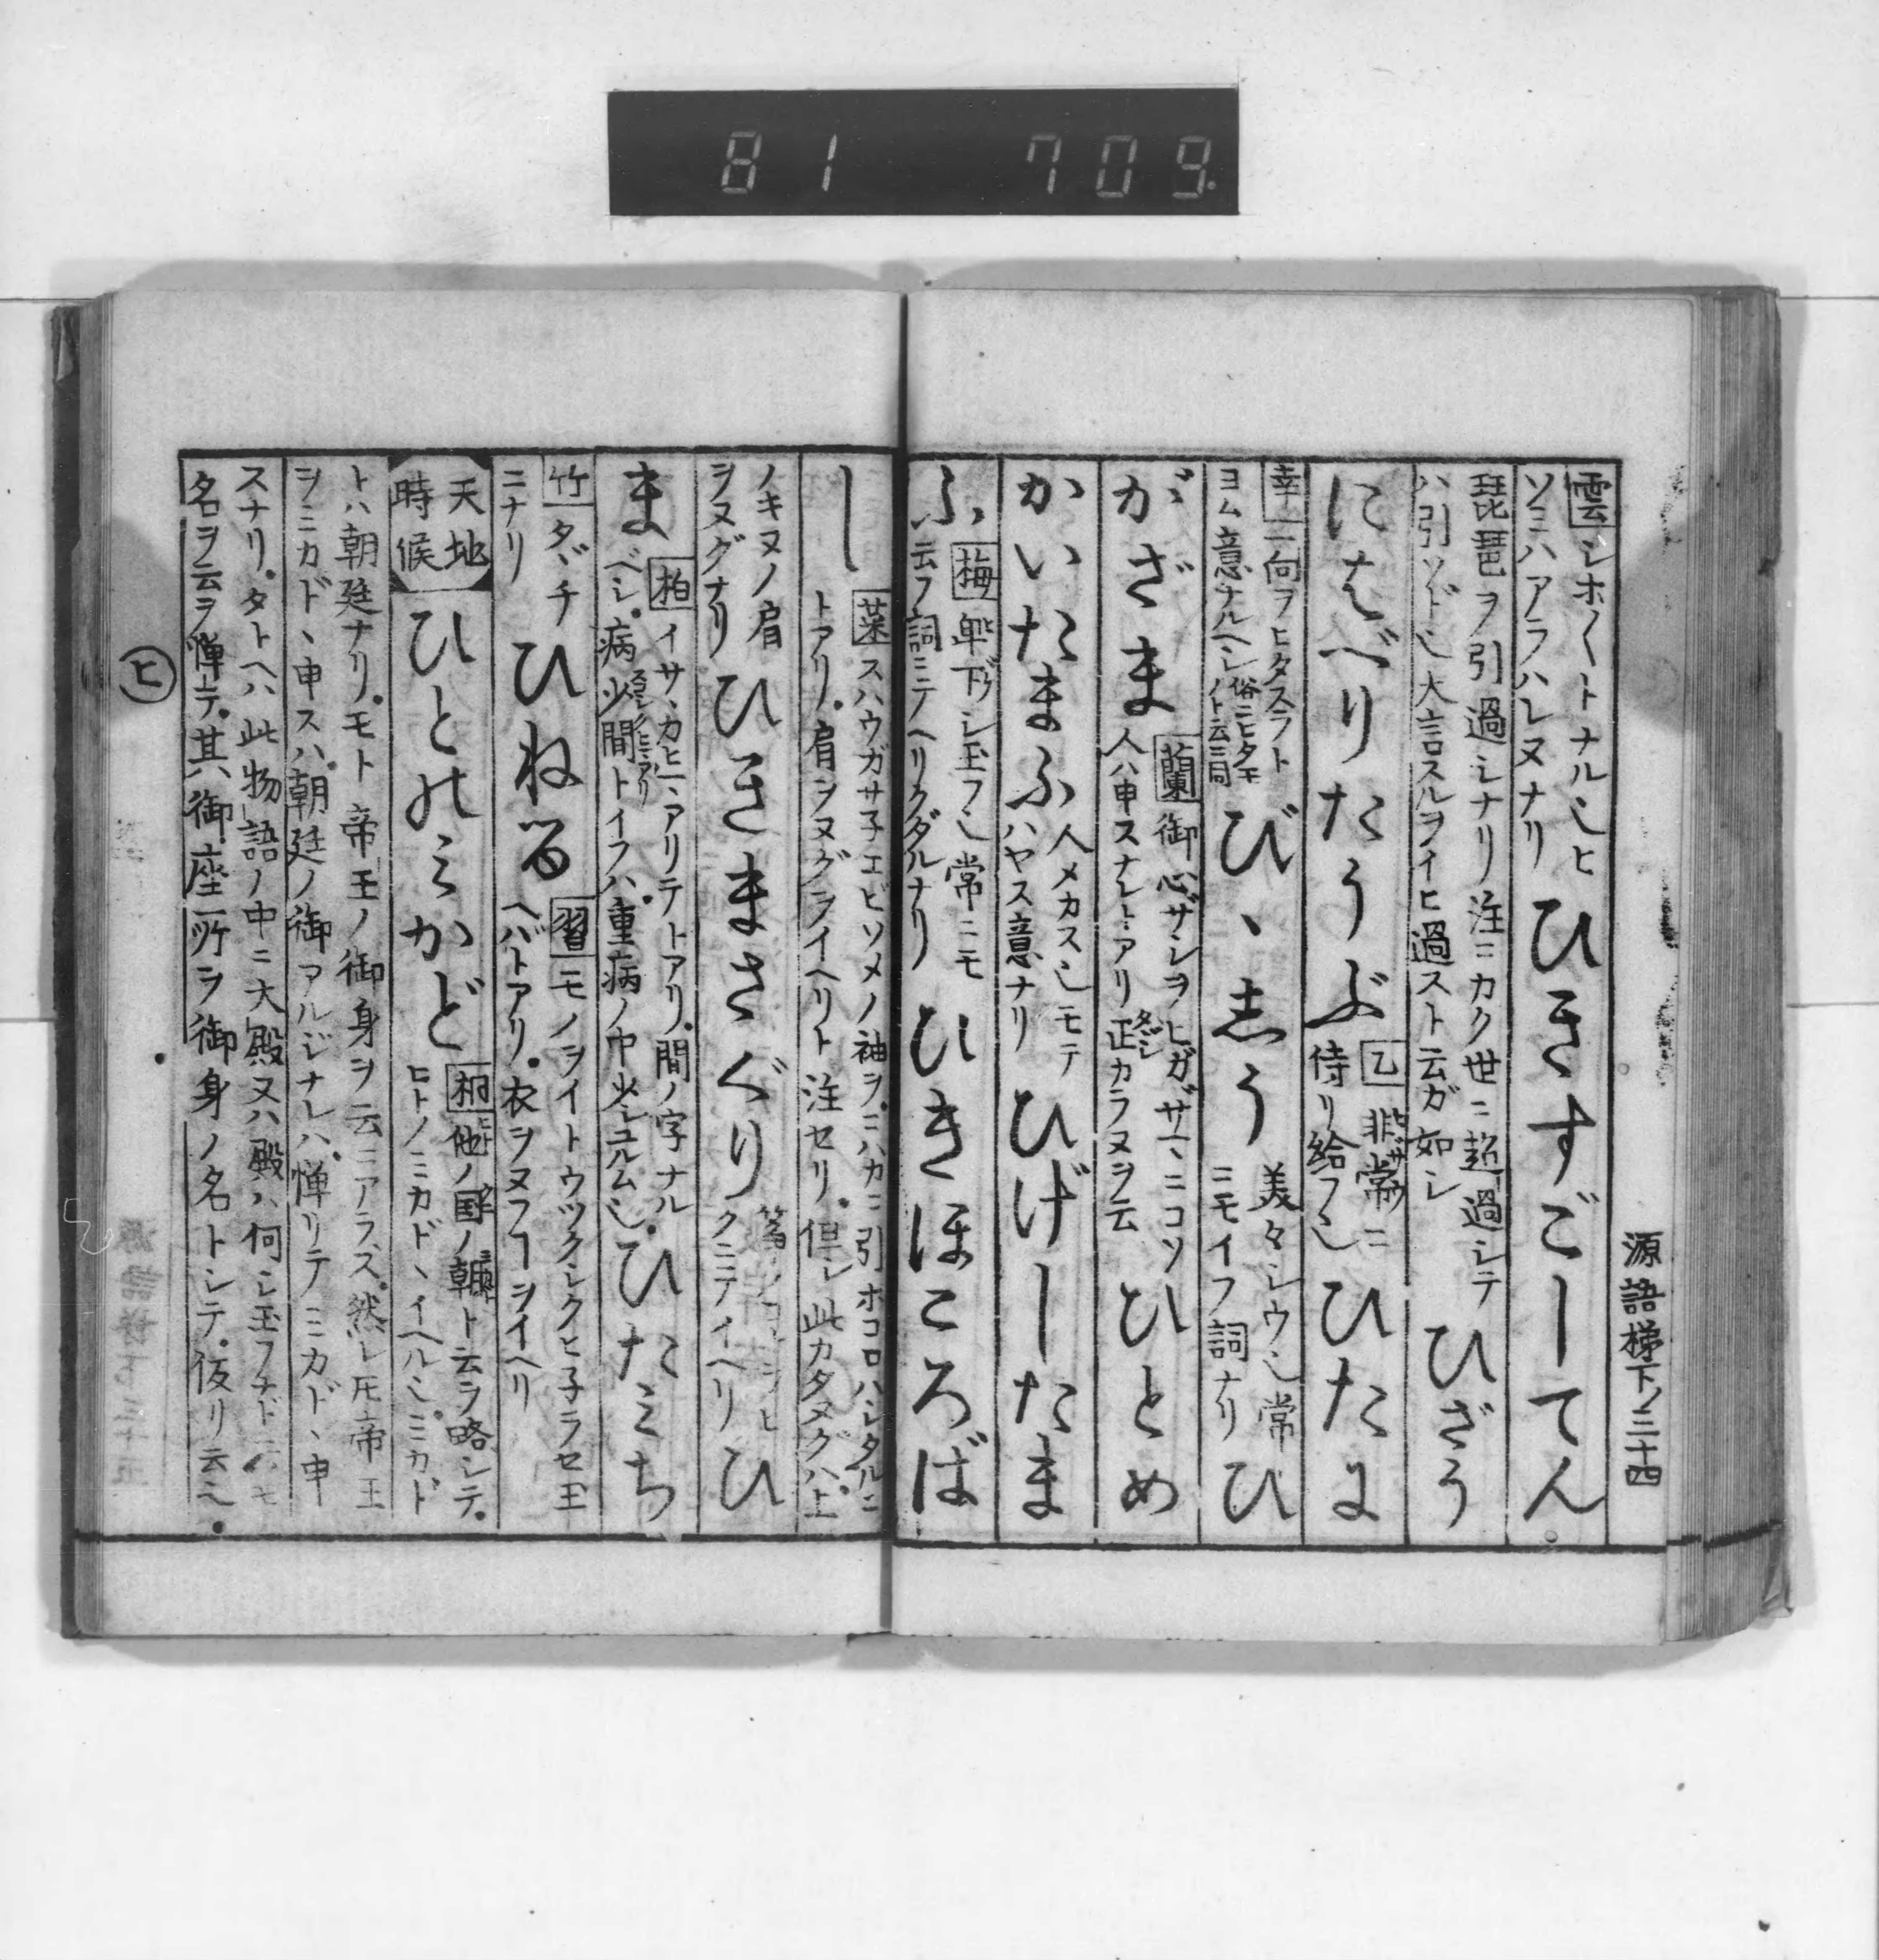 81 709.
源語梯下ノ三十四
雲シホ〱トナル也ヒ
ソミハアラハレヌナリ
ひきすごしてん
琵琶ヲ引過シナリ注ニカク世ニ超過シテ
ハ引ソド也大言スルヲイヒ過スト云ガ如シ
ひざう
にはべりたうぶ
乙非常ニ
侍リ給フ也
ひたみ
幸一向ヲヒタスラト
ヨム意ナルヘシ俗ニヒタモノト云ニ同
び、しう
美々シウ也常
ニモイフ詞ナリ
ひ
がざま
蘭御心ザシヲヒガザマニコソ
人ハ申スナレトアリ正カラヌヲ云
ひとめ
かいたまふ
人メカス也モテ
ハヤス意ナリ
ひげしたま
ふ
梅卑下シ玉フ也常ニモ
云フ詞ニテヘリクダルナリ
ひきほころば
し
葉スハウガサ子エビソメノ袖ヲニハカニ引ホコロハシタルニ
トアリ肩ヲヌグヲイヘリト注セリ但シ此カタヌグハ上
ノキヌノ肩
ヲヌグナリ
ひきまさぐり
クニテイヘリ
ひ
ま
柏イサヽカヒマアリテトアリ間ノ字ナル
ベシ病少間トイフハ重病ノ中少シユルム也
ひたみち
竹タヾチ
ニナリ
ひねる
習モノヲイトウツクシクヒ子ラセ玉
ヘバトアリ衣ヲヌフ﹁ヲイヘリ
天地
時候
ひとのみかど
桐他ノ国ノ朝ト云ヲ略シテ
ヒトノミカドヽイヘル也ミカド
トハ朝廷ナリモト帝王ノ御身ヲ云ニアラズ然レ𪜈帝王
ヲミカドヽ申スハ朝廷ノ御アルジナレハ憚リテミカドヽ申
スナリタトヘハ此物語ノ中ニ大殿又ハ殿ハ何シ玉フナド云モ
名ヲ云ヲ憚テ其御座所ヲ御身ノ名トシテ仮リ云ヘ
ヒ